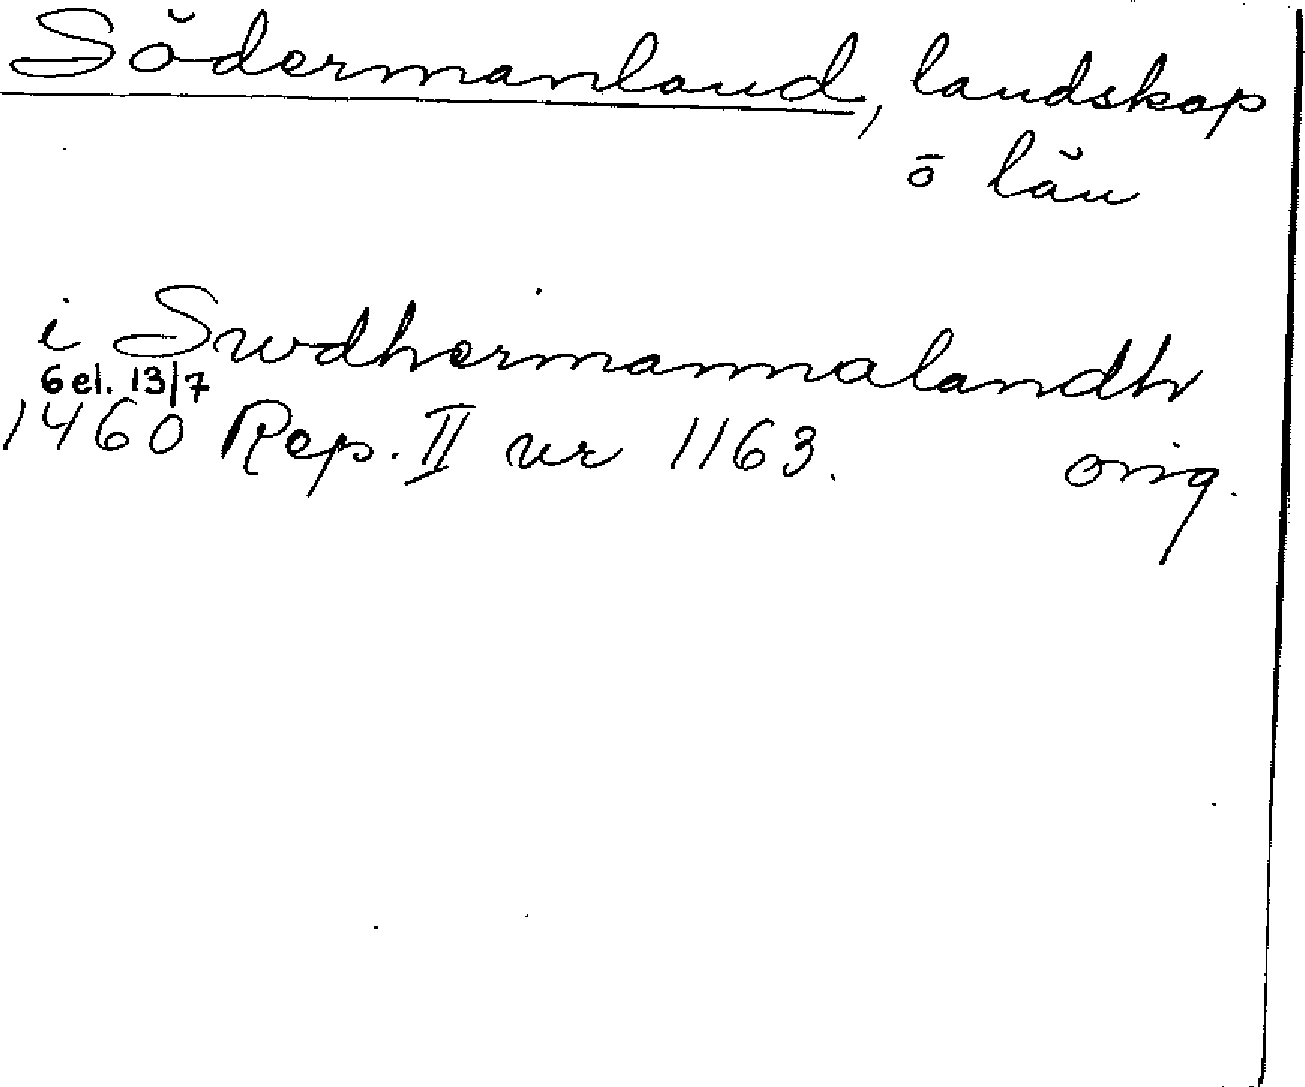 Södermanland, landskap
o län
i Swdhermannalandh
6 el. 13/7
1460 Rep. II nr 1163. orig.